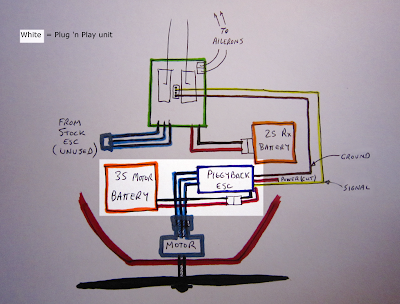 White = Plug 'n Play unit
TO
AILERONS
FROM
STOCK
ESC
(UNUSED)
2S RX
BATTERY
GROUND
3S MOTOR
BATTERY
PIGGYBACK
ESC
POWER (CUT)
SIGNAL
MOTOR